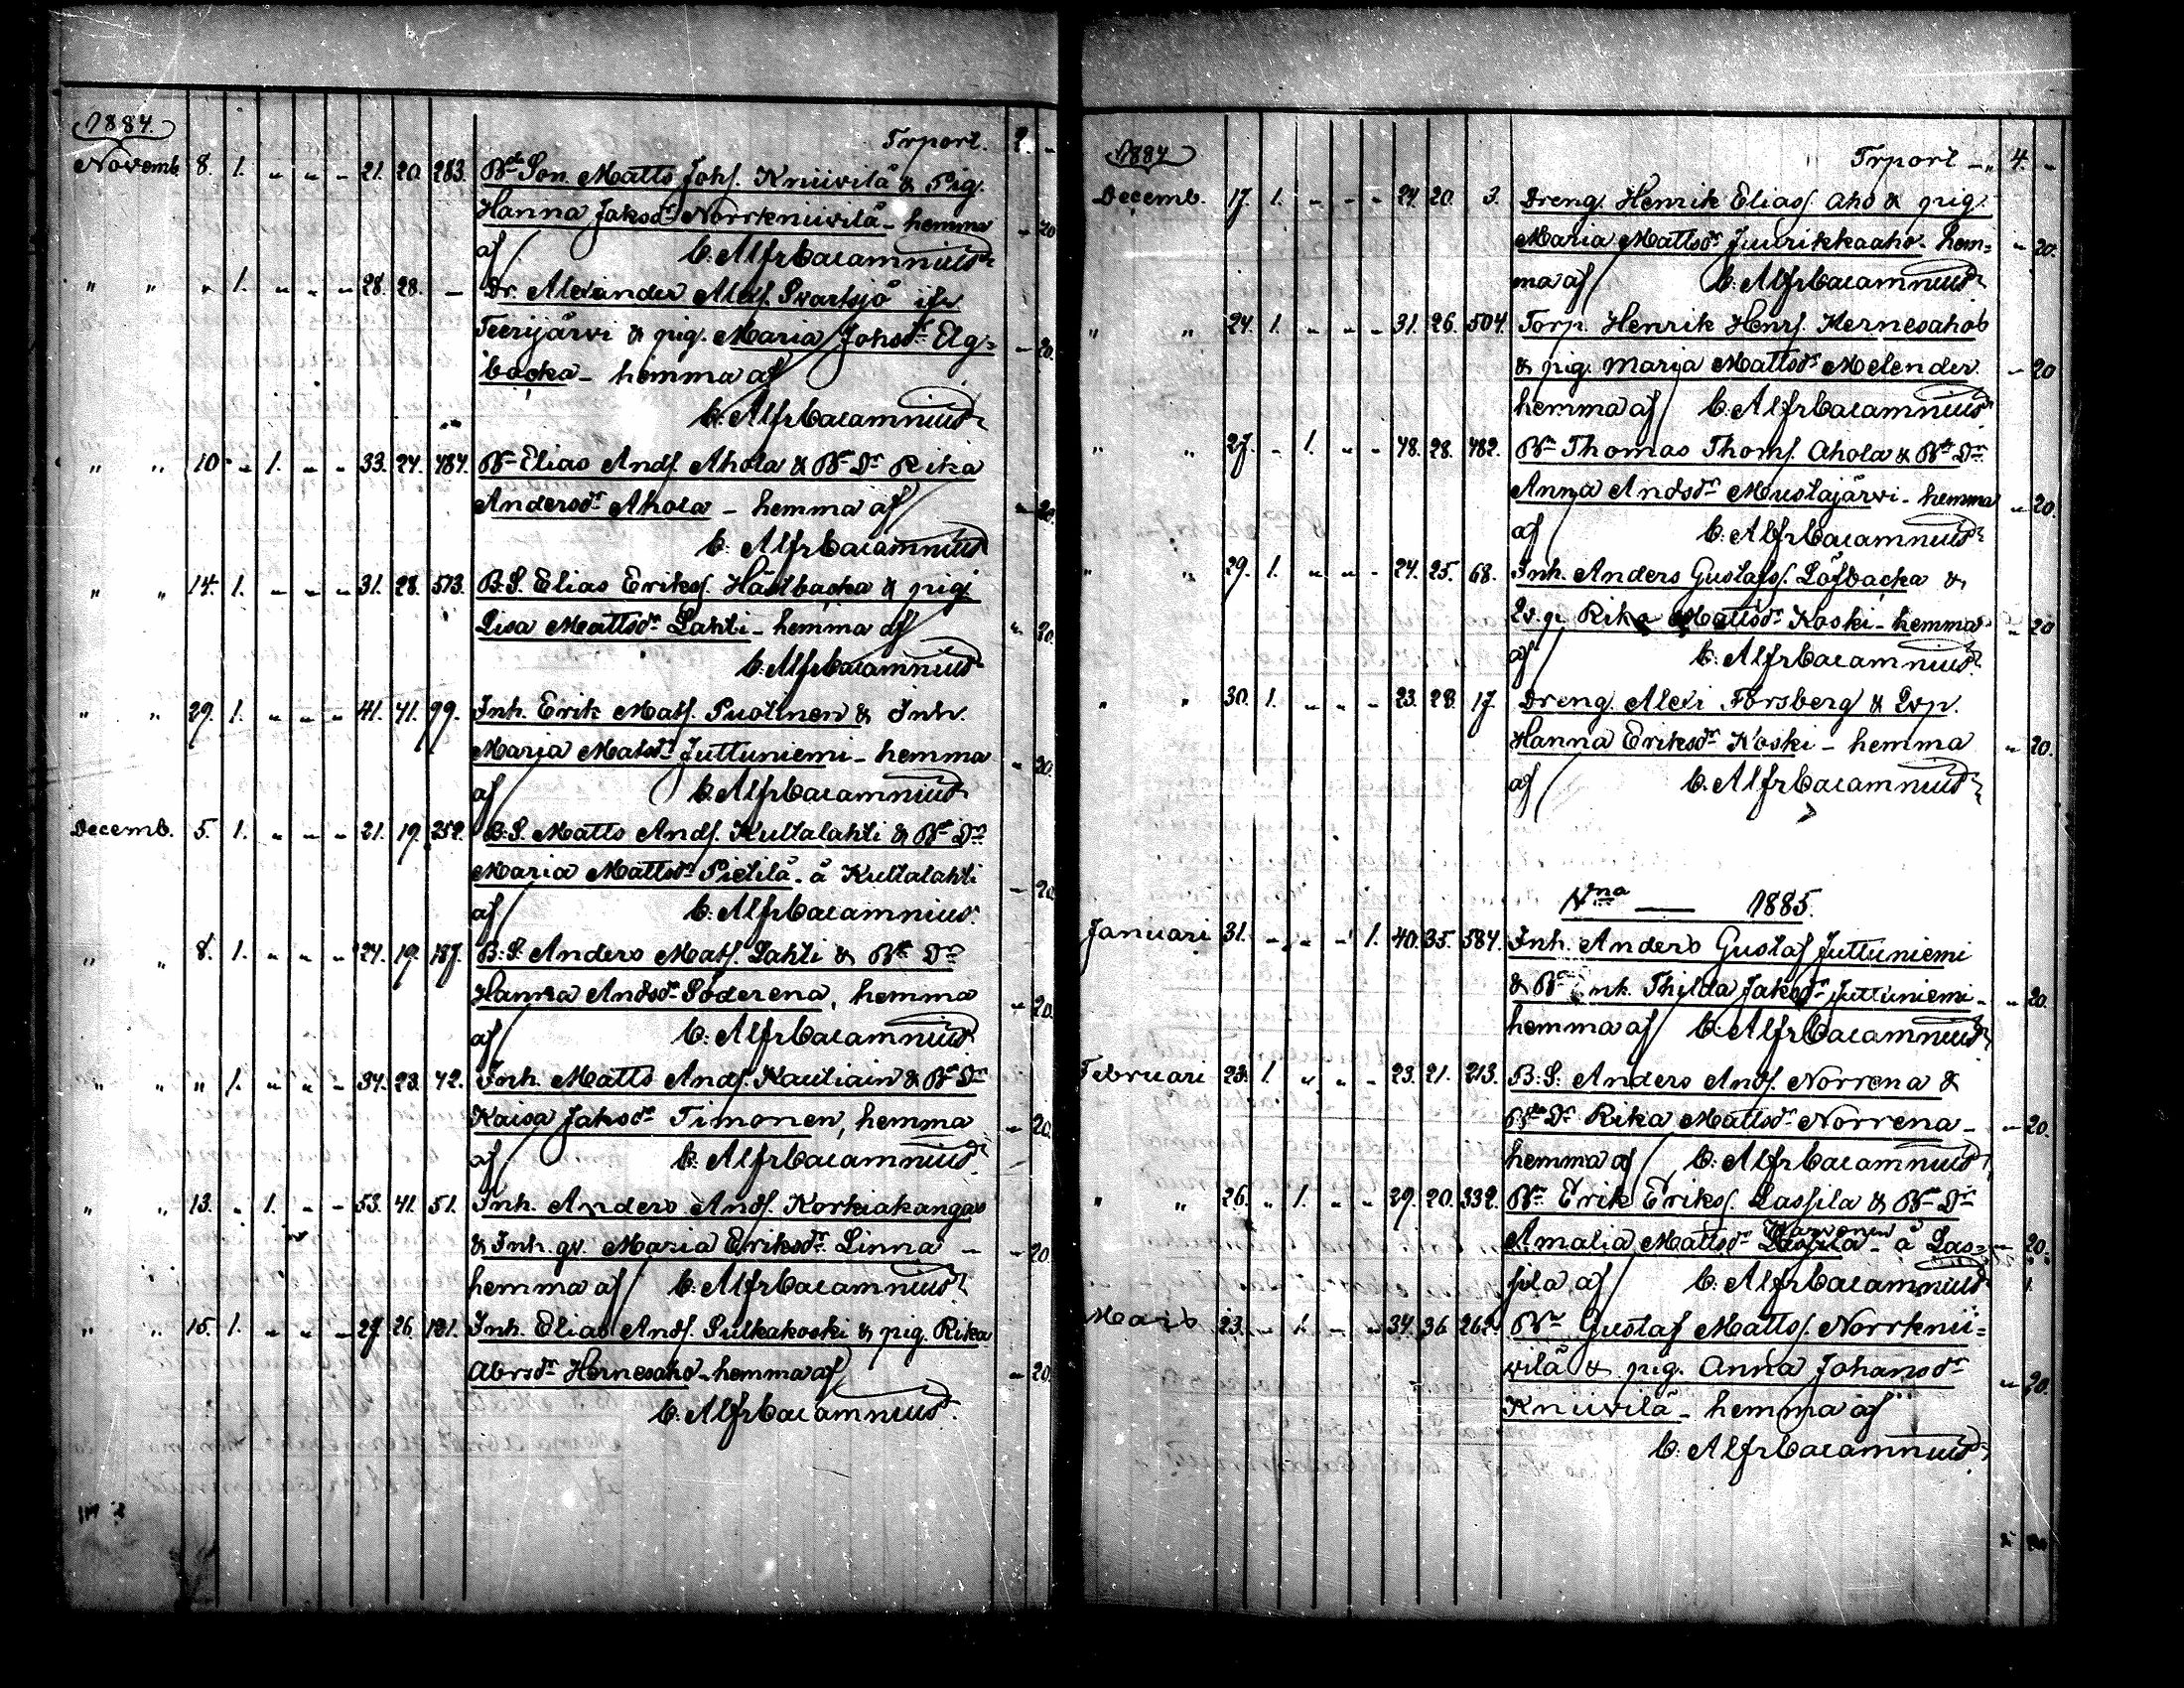 1884.
Trport. 2. -
Novemb. 8. 1. " " - 21. 20. 283. Bde Son Matts Johs. Kniivilä & Pig.
Hanna Jaksdr Norrkniivilä - hemma - 20
af C. Alfr Cacamnius
" " " 1. " " - 28. 28. - Dr. Alexander Alexs. Svartsjö ifr
Teerijärvi & pig. Maria Johsdr Elg= - 20.
backa - hemma af
C. Alfr Cacamnius
" " 10 - 1. - - 33. 24. 484. Bn Elias Ands. Ahola & Bn Dr Rika
Andersdr Ahola - hemma af - 20.
C. Alfr Cacamnius
" " 14. 1. - - - 31. 28. 513. B.S. Elias Eriks. Hästbacka & pig.
Lisa Mattsdr Lahti - hemma af " 20.
C. Alfr Cacamnius
" " 29. 1. " - - 41. 41. 99. Inh. Erik Mats. Puotinen & Inh.
Maria Matsdr Juttuniemi - hemma " 20.
af C. Alfr Cacamnius
Decemb. 5. 1. " - - 21. 19. 252. B.S. Matts Ands. Kultalahti & Bn Dr
Maria Mattsdr Pietilä - å Kultalahti - 20
af C. Alfr Cacamnius
" " 8. 1. - - - 24. 19. 187. B.S. Anders Mats. Lahti & Bn Dr
Hanna Andsdr Söderena, hemma - 20.
af C. Alfr Cacamnius
" " " 1. " " - 34. 23. 42. Inh. Matts Ands. Kautiain & Bn Dr
Kaisa Jaksdr Timonen, hemma - 20.
af C. Alfr Cacamnius
" " 13. - 1. - - 53. 41. 51. Inh. Anders Ands. Korkiakangas
& Inh. qv. Maria Eriksdr Linna - - 20.
hemma af C. Alfr Cacamnius
" " 15. 1. - - - 27 26. 181. Inh. Elias Ands. Sulkakoski & pig. Rika
Abrsdr Hernesaho - hemma af - 20.
C. Alfr Cacamnius
1884
Trport - " 4. -
Decemb. 17. 1. - - - 24. 20. 3. Dreng. Henrik Elias. Aho & pig.
Maria Mattsdr Juurikkaaho - hem= - 20.
ma af C. Alfr Cacamnius
" " 24. 1. - - - 31. 26. 504. Torp. Henrik Henrs. Hernesaho
& pig. Maria Mattsdr Melender - 20
hemma af C. Alfr Cacamnius
" " 27. - 1. - - 48. 28. 482. Bn Thomas Thoms. Ahola & Bn Dr
Anna Andsdr Mustajärvi - hemma - 20.
af C. Alfr Cacamnius
" " 29. 1. " - - 24. 25. 68. Inh. Anders Gustafs. Löfbacka &
Rika Mattsdr Koski - hemma - 20
af C. Alfr Cacamnius
" " 30. 1. " - - 23. 28. 17. Dreng. Alexi Forsberg &
Hanna Eriksdr Koski - hemma " 20.
af C. Alfr Cacamnius
1885.
Januari 31. - - - 1. 40. 35. 584. Inh. Anders Gustaf Juttuniemi
& Thilda Jaksdr Juttuniemi - - 20.
hemma af C. Alfr Cacamnius
Februari 23. 1. " " - 23. 21. 213. B.S. Anders Ands. Norrena &
Bde Dr Rika Mattsdr Norrena - - 20.
hemma af C. Alfr Cacamnius
" " 26. " 1. - - 29. 20. 332. Bn Erik Eriks. Lassila & Bn Dr
Amalia Mattsdr å Las= - 20.
sila af C. Alfr Cacamnius
Mars 23. - 1. - - 34. 36 262. Bn Gustaf Matts. Norrknii=
vilä & pig. Anna Johansdr - 20.
Kniivilä - hemma af
C. Alfr Cacamnius